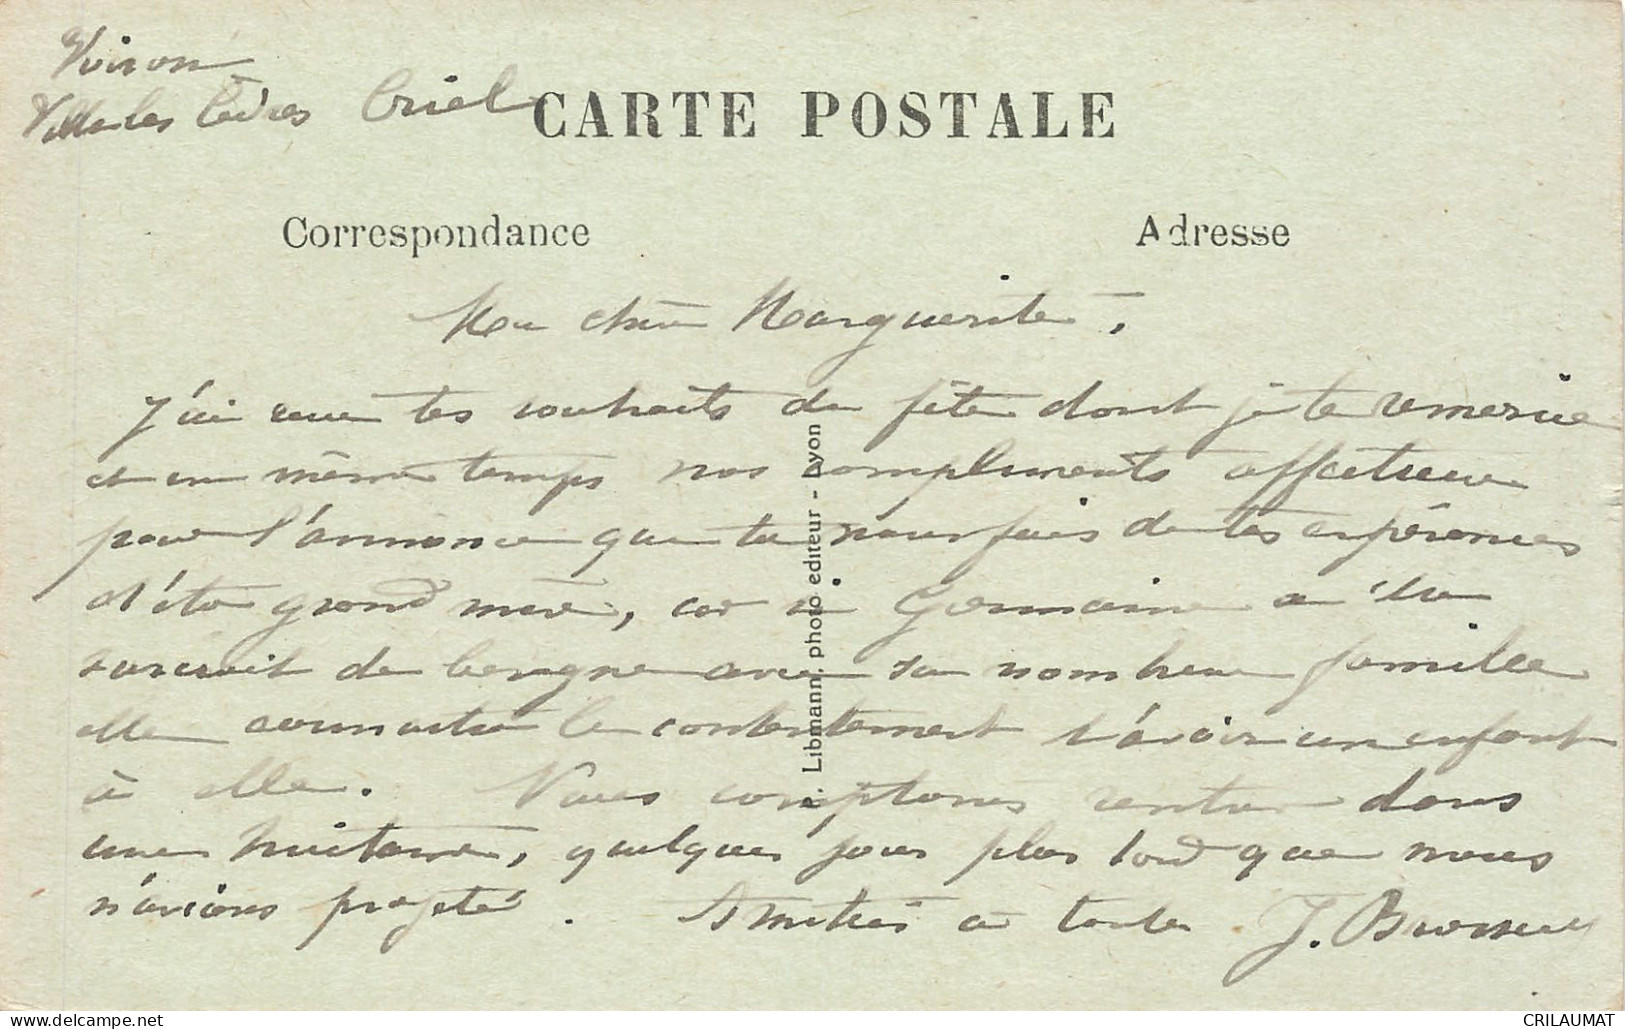 Voiron
Villa les Cèdres Criel
CARTE POSTALE
Correspondance
Adresse
Ma chère Marguerite,
J'ai reçu tes souhaits de fête dont je te remercie
et en même temps nos compliments affectueux
pour l'annonce que tu nous fais de tes espérances
d'être grand mère, car si Germaine a un
surcroit de besogne avec sa nombreuse famille
elle connaitra le contentement d'avoir un enfant
à elle. Nous comptons rentrer dans
une huitaine, quelques jours plus tard que nous
n'avions projeté. Amitiés à toutes J.
. Libmann, photo editeur - Lyon
CRILAUMAT